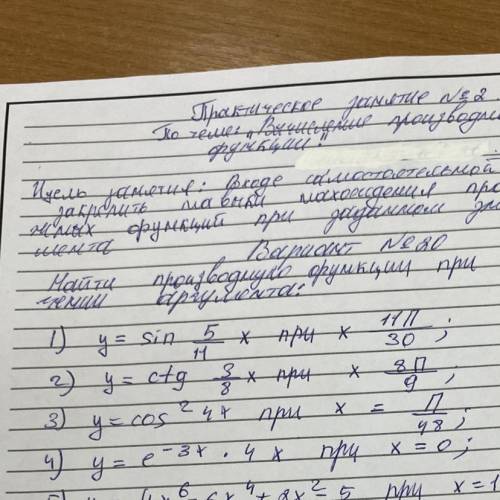 Практическое занятие №2
По теме: „Вычисление производн
функции."
Цель занятия: Входе самостоятельной
закрепить навыки нахождения про
жных функций при заданном зна
мента
Вариант №20
Найти производную функции при
чении аргумента:
1) y = sin 5/11 x при x 11П/30;
2) y = ctg 3/8 x при x 8П/9;
3) y = cos² 4x при x = П/48;
4) y = e⁻³ˣ · 4x при x = 0;